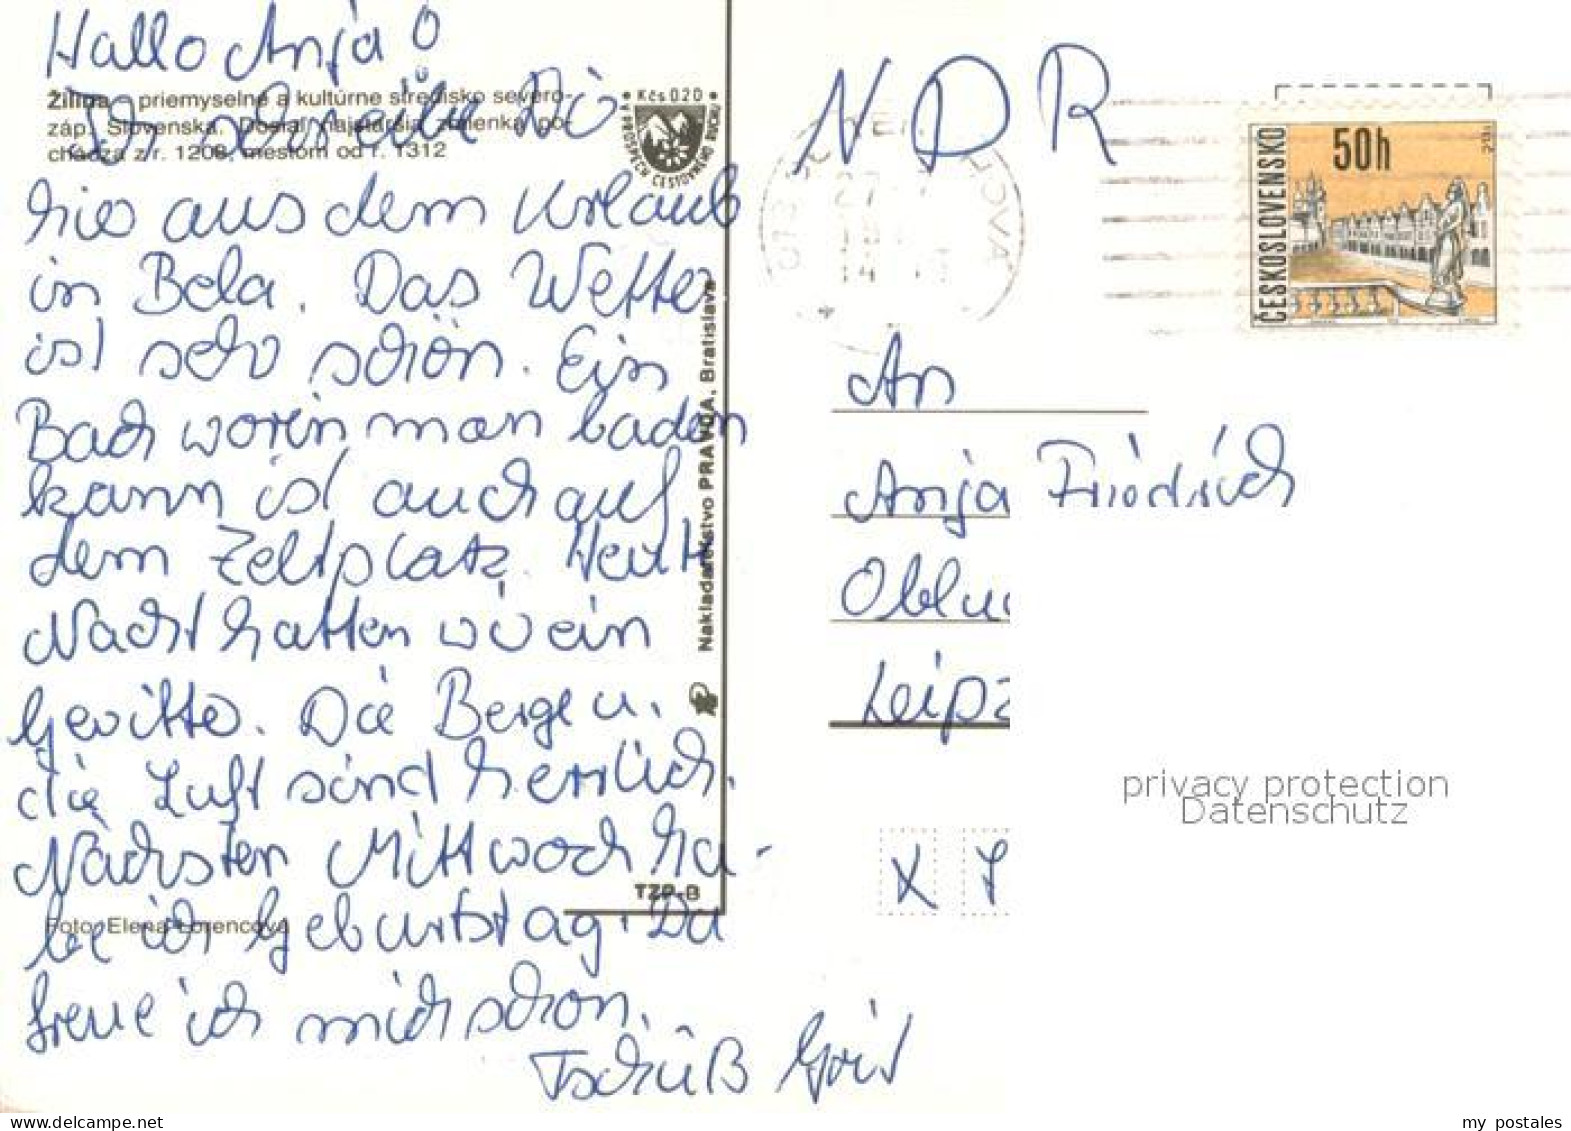 Hallo Anja!
Žilina – priemyselné a kultúrne stredisko severo-
záp. Slovenska. Dosiaľ najstaršia zmienka po-
chádza z r. 1208, mestom od r. 1312
Kčs 0,20
V PROSPECH CESTOVNÉHO RUCHU
hier aus dem Urlaub
in Bela. Das Wetter
ist sehr schön. Ein
Bach worin man baden
kann ist auch auf
dem Zeltplatz. Heut
Nacht hatten wir ein
Gewitter. Die Berge u.
die Luft sind herrlich.
Nächsten Mittwoch ha-
be ich Geburtstag. Da
freue ich mich schon.
Tschüß
Nakladateľstvo PRAVDA, Bratislava
TZP-B
Foto: Elena Lorencová
NDR
50h
ČESKOSLOVENSKO
An
Anja Friedrich
Leipz
privacy protection
Datenschutz
www.delcampe.net
my_postales